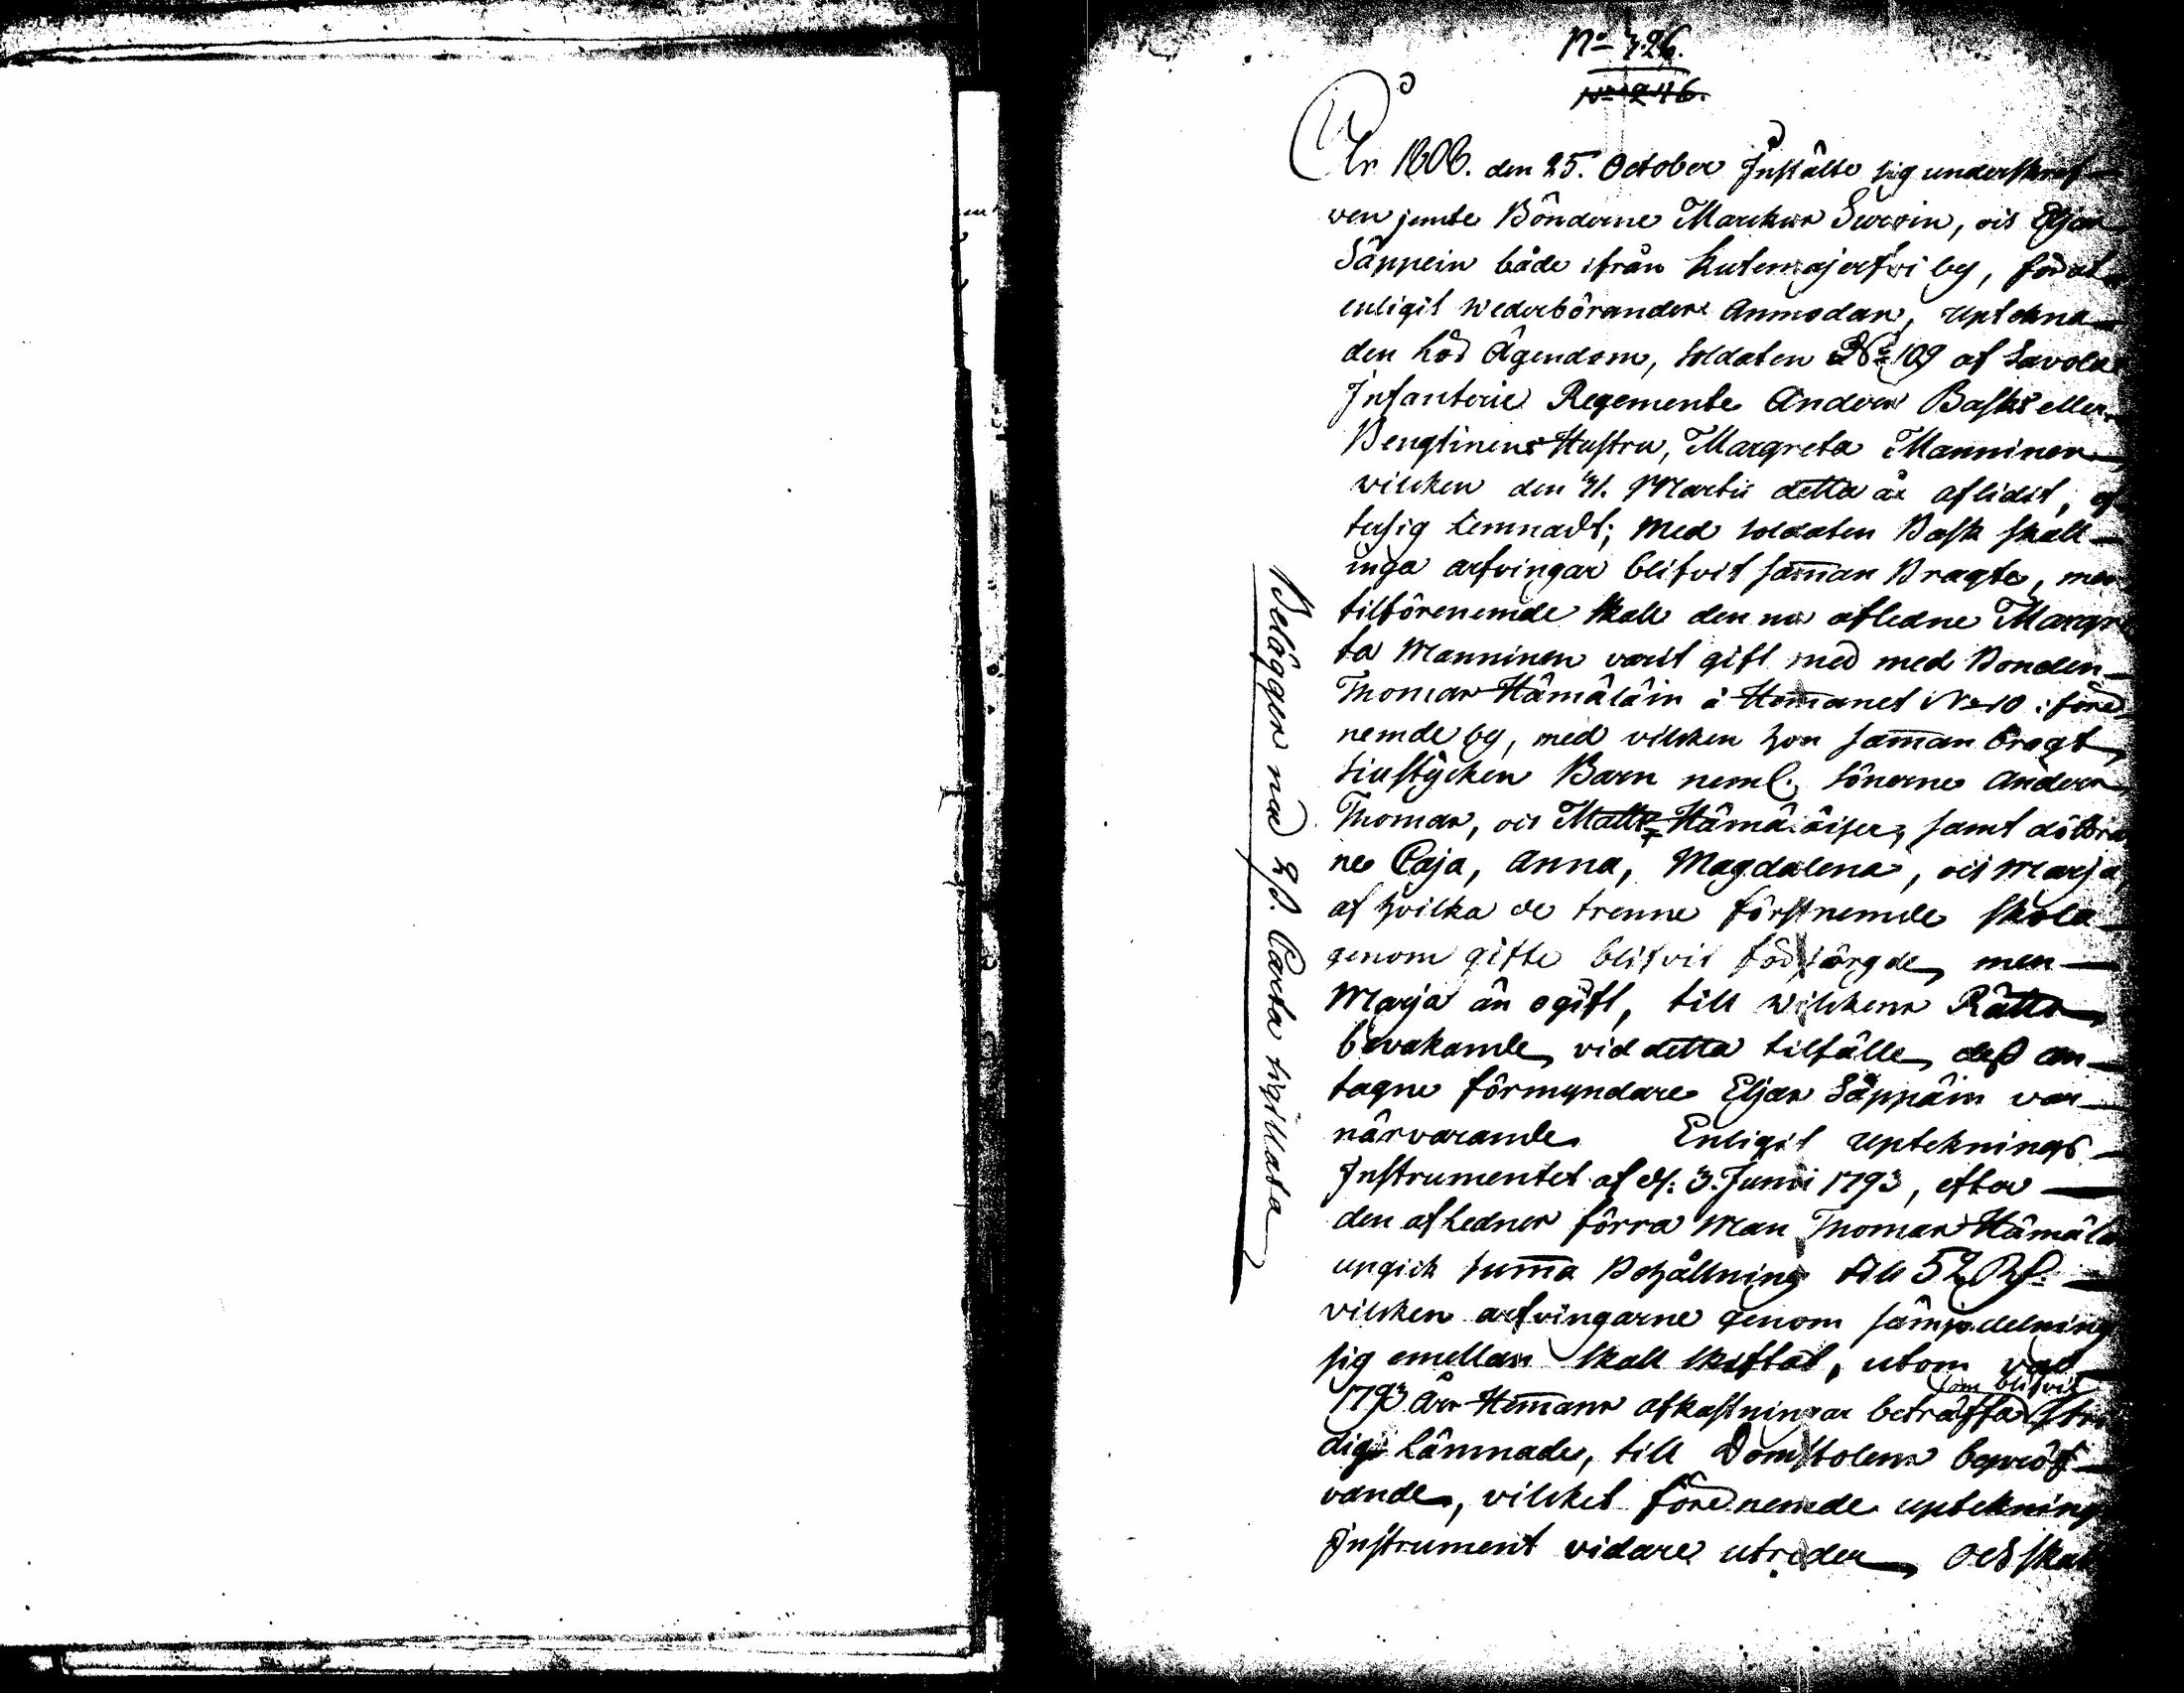 No 726.
No 246.
År 1808. den 25. October Instälte sig underskref-
ven jemte Bönderne Marckus Sursin, och Eljas
Säppein både ifrån Kutemajerfvi by, för at
enligit Wederbörandens Anmodan, uptekna
den Lös Ägendom, Soldaten No 109 af Savolax
Infanterie Regemente Anders Basks eller
Bengtinens Hustru, Margreta Manninen
vilcken den 31. Martii detta år aflidit, ef
ter sig lemnadt; Med Soldaten Bask skall
inga arfvingar blifvit samman Bragte, men
tilförenemde skall den nu afledne Margre
ta Manninen varit gift med med Bonden
Thomas Hämäläin å Hemanet No 10 i före
nemde by, med vilcken hon samman bragt
siustycken Barn neml. Sönerne Anders
Thomas, och Matts Hämäläiser, samt döttrar
ne Caja, Anna, Magdalena, och Marja,
af hvilka de trenne förstnemde skola
genom gifte blifvit försörgde, men
Marja än ogift, till Wilckens Rätts
bevakande vid detta tilfälle, dess an-
tagne förmyndare Eljas Säppäin var
närvarande. Enligit Upteknings
Instrumentet af d. 3. Junii 1793, efter
den afledner förra Man Thomas Hämälä
upgick Summa Behållning till 52 Rd.
vilcken arfvingarne genom sämjodelning
sig emellan skall skiftat, utom vad
som blifvit
1793 Års Hemmans afkastningar beträffa stri
digt Lämnade, till Domstolens bepröf-
vande, vilcket förenemde uptekning
Instrument vidare utreder, och skall
Belägges med 2 s. Carta sigillata